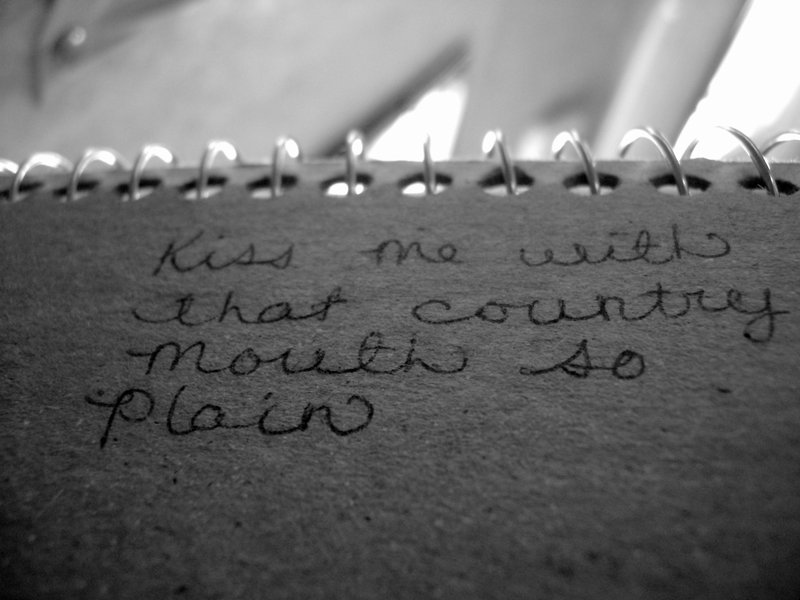 Kiss me with
that country
mouth so
plain